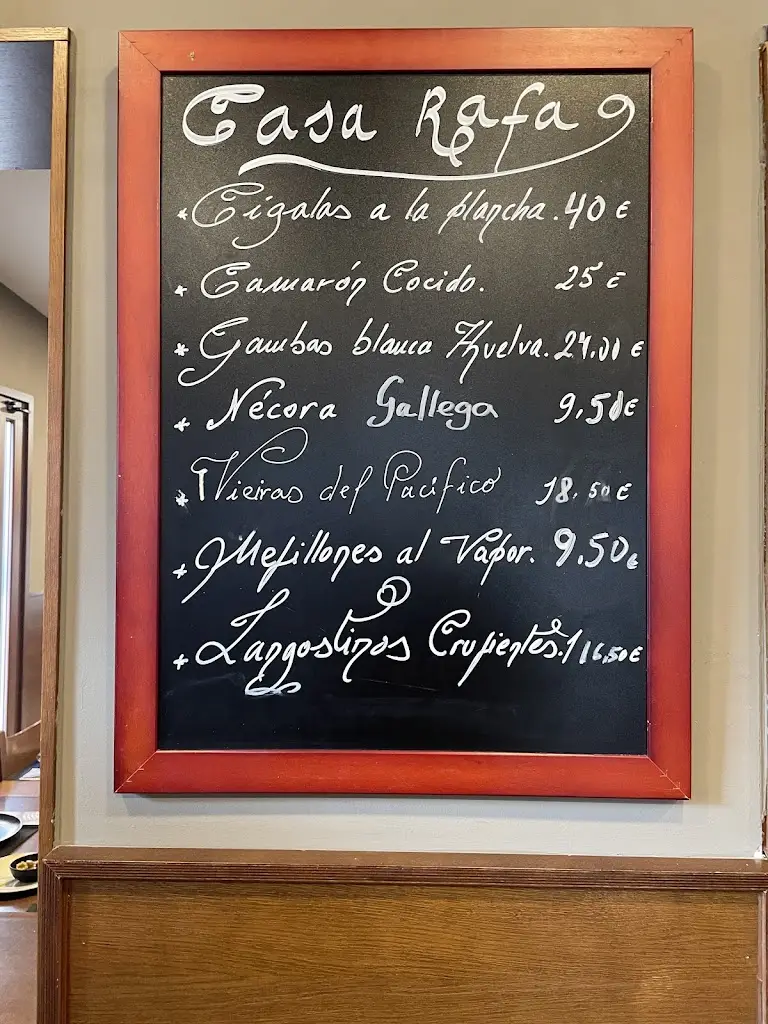 Casa Rafa
* Cigalas a la plancha. 40 €
* Camarón Cocido. 25 €
* Gambas blanca Huelva. 24,00 €
* Nécora Gallega 9,50€
* Vieiras del Pacífico 18,50 €
* Mejillones al Vapor. 9,50€
* Langostinos Crujientes. 16,50€